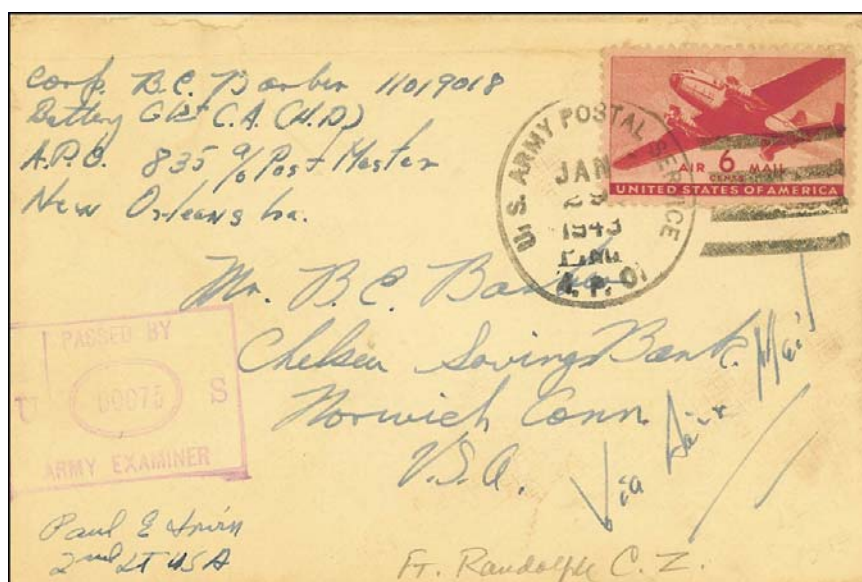 Corp. B.C. Barber 11019018
Battery G 1st C.A. (H.D.)
A.P.O. 835 c/o Post Master
New Orleans La.
U.S. ARMY POSTAL SERVICE
JAN
29
1943
A.P.O.
AIR 6 MAIL
CENTS
UNITED STATES OF AMERICA
Mr. B.C. Barber
Chelsea Savings Bank
Norwich Conn.
U.S.A.
Via Air Mail
PASSED BY
U 00075 S
ARMY EXAMINER
Paul E Irvin
2nd LT USA
Ft. Randolph C.Z.